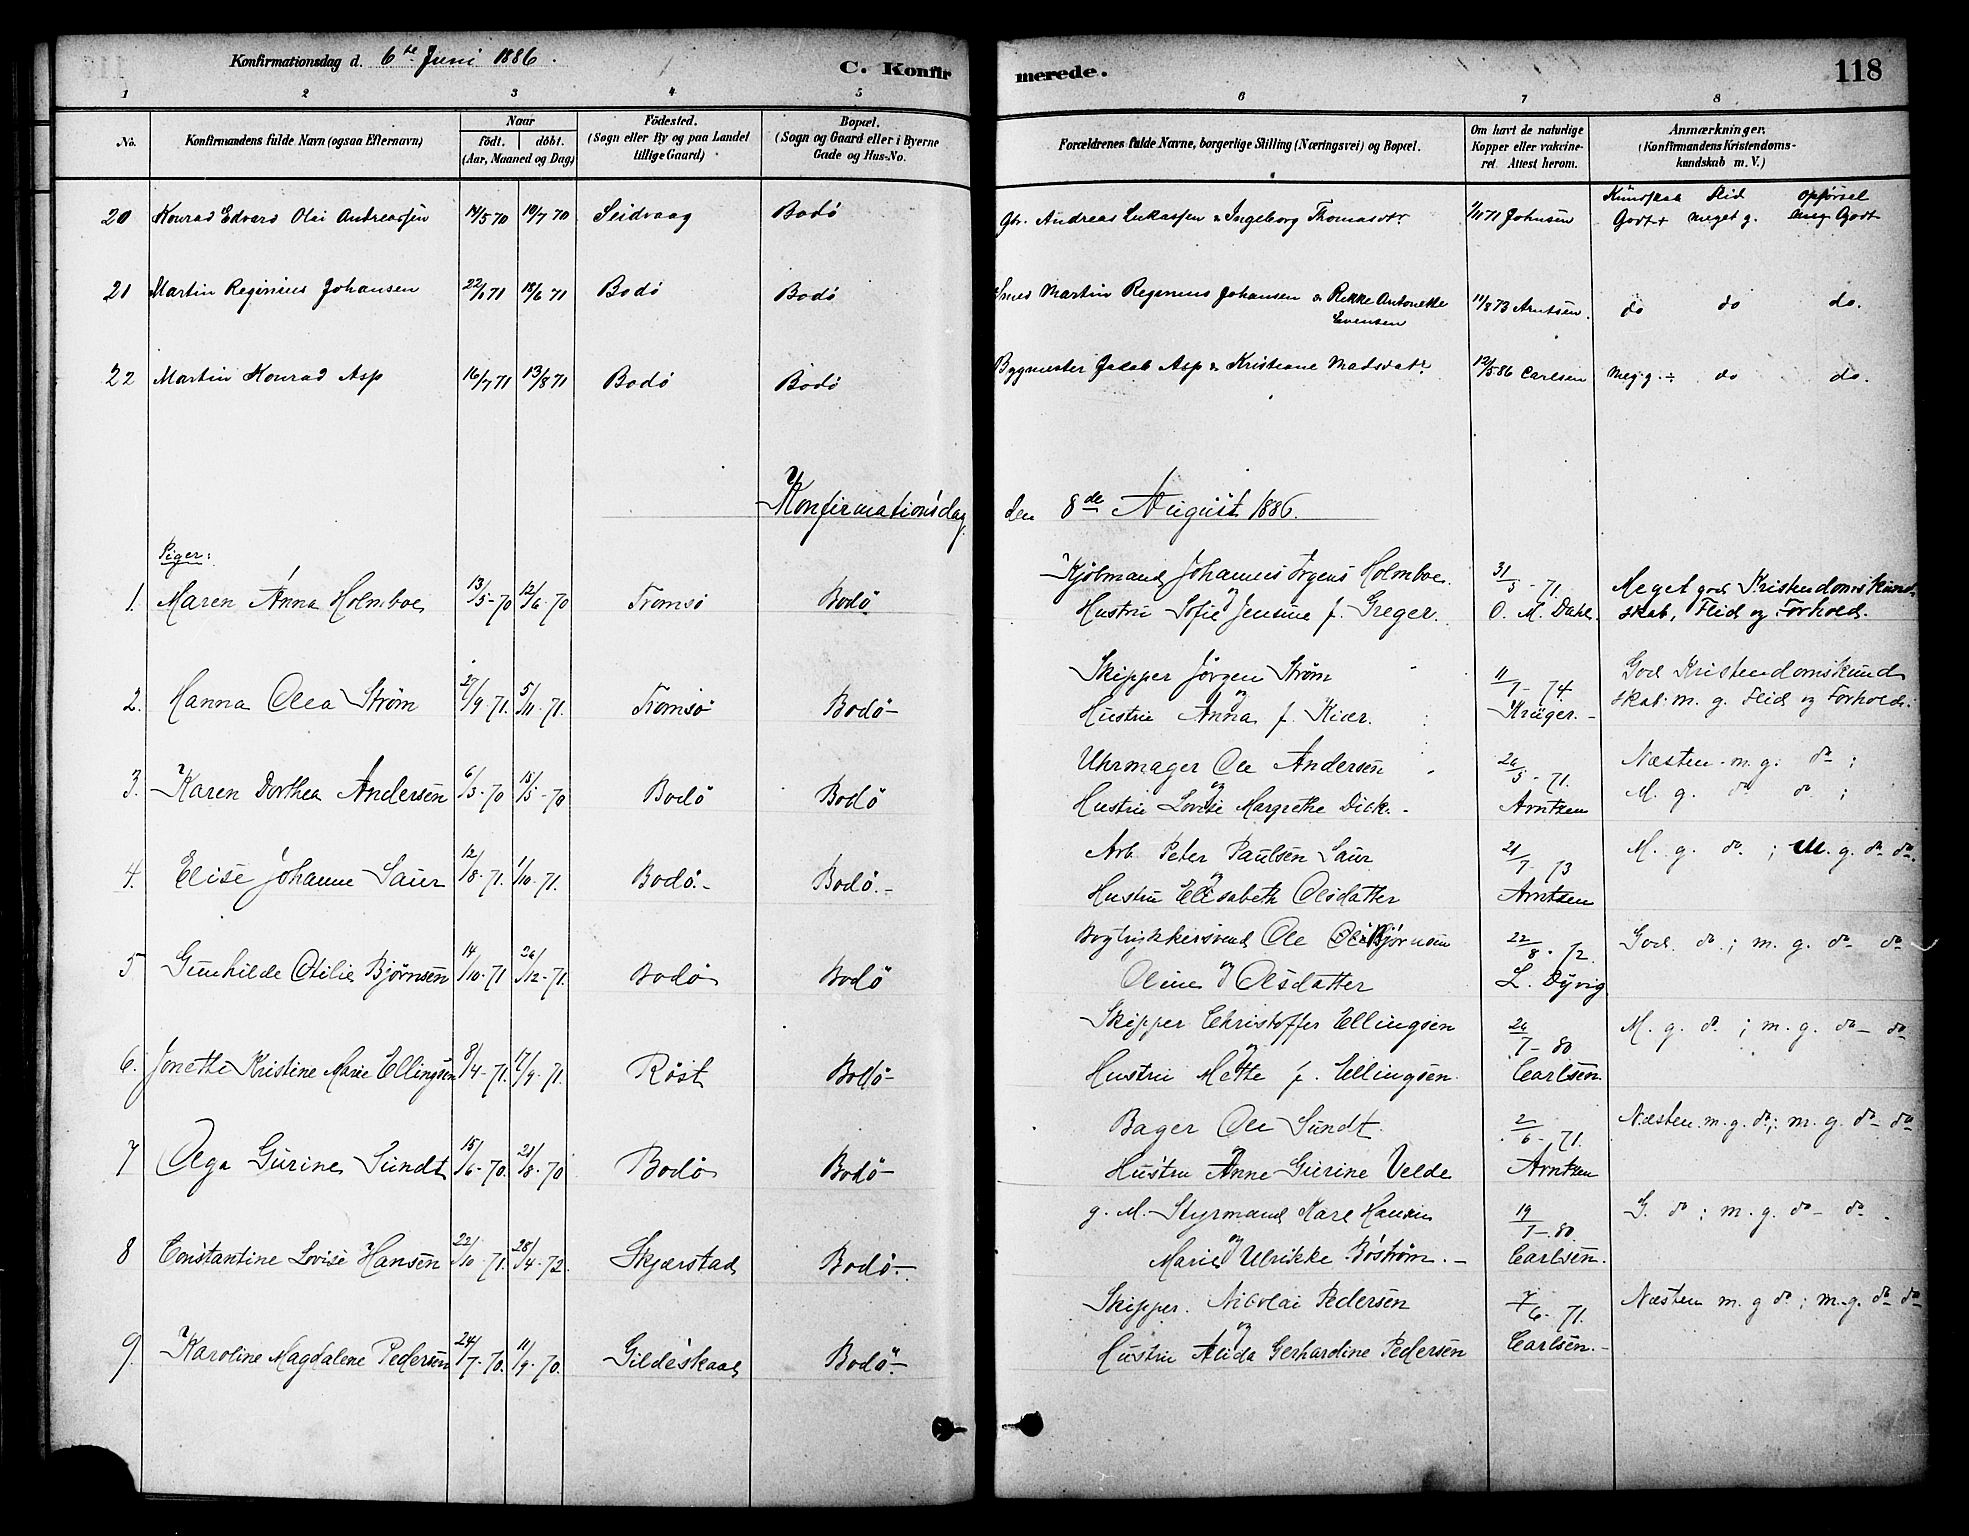 Konfirmationsdag d. 6te Juni 1886.
C. Konfirmerede.
118
1 2 3 4 5 6 7 8
No.
Konfirmandens fulde Navn (ogsaa Efternavn)
Naar
födt. döbt.
(Aar, Maaned og Dag)
Födested.
(Sogn eller By og paa Landet
tillige Gaard)
Bopæl.
(Sogn og Gaard eller i Byerne
Gade og Hus-No.
Forældrenes fulde Navne, borgerlige Stilling (Næringsvei) og Bopæl.
Om havt de naturlige
Kopper eller vakcine-
ret. Attest herom.
Anmærkninger.
(Konfirmandens Kristendoms-
kundskab m. V.)
Kundskaab Flid Opførsel
20 Konrad Edvard Olai Andreassen 14/5 70 10/7 70 Seidvaag Bodö Gbr. Andreas Lukassen & Ingeborg Thomasdtr 71 Johnsen Godt+ meget g. Godt
21 Martin Reginius Johansen 22/1 71 18/6 71 Bodö Bodö Smed Martin Reginius Johansen & Rikke Antonette
Evensen
11/8 73 Arntsen. do do do.
22 Martin Konrad Asp 16/7 71 13/8 71 Bodö Bodö Bygmester Jakob Asp & Kristiane Madsdatr 12/5 86 Carlsen Meg. g. ÷ do do.
Konfirmationsdag den 8de August 1886.
Piger:
1. Maren Anna Holmboe 13/5-70 12/6-70 Tromsö Bodö
Kjøbmand Johannes Irgens Holmboe
og
Hustru Sofie Jensine f. Greger.
31/5-71.
O. M. Dahl.
Meget god Kristendomskund-
skab, Flid og Forhold.
2. Hanna Olea Strøm 27/9-71. 5/11-71. Tromsö Bodö-
Skipper Jørgen Strøm
og
Hustru Anna f. Kiær.
11/7-74
Krüger.-
God Kristendomskund
skab. m. g. Flid og Forhold.
3. Karen Dorthea Andersen 6/3-70 15/5-70 Bodö Bodö
Uhrmager Ole Andersen
og
Hustru Lovise Margrethe Dick.-
26/5-71.
Arntzen
Næsten m. g. do ;
M. g. do do ;
4. Elise Johanne Saur 12/8-71. 1/10-71. Bodö.- Bodö.-
Arb. Peter Paulsen Saur
og
Hustru Elisabeth Olsdatter
21/7-73
Arntzen
M. g. do. ; M. g. do do.
5 Gunhilde Otilie Bjørnsen 14/10-71 26/12-71. Bodö Bodö
Bogtrykkersvend Ole Bjørnsen
og
Oline Olsdatter
22/8-72.
L. Dyvig
God do ; m. g. do do
6. Jonethe Kristine Marie Ellingsen 8/4-71. 17/9-71. Røst Bodö-
Skipper Christoffer Ellingsen
og
Hustru Mette f. Ellingsen.
26/7-80
Carlsen.
M. g. do ; m. g. do - do
7 Olga Gurine Sundt 15/6-70. 21/8-70 Bodö Bodö-
Bager Ole Sundt.
og
Hustru Anne Gurine Velde
2/6-71.
Arntzen
Næsten m. g. do; m. g. do do
8 Constantine Lovise Hansen 22/10-71. 28/4-72. Skjærstad Bodö-
g. M. Styrmand Karl Hansen
og
Marie Ulrikke Boström.-
19/7-80.
Carlsen.
G. do ; m. g. do - do.
9. Karoline Magdalene Pedersen 24/7-70. 11/9-70. Gildeskaal Bodö-
Skipper. Nikolai Pedersen
og
Hustru Alida Gerhardine Pedersen
7/6-71.
Carlsen.-
Næsten m. g do ; m. g. do do